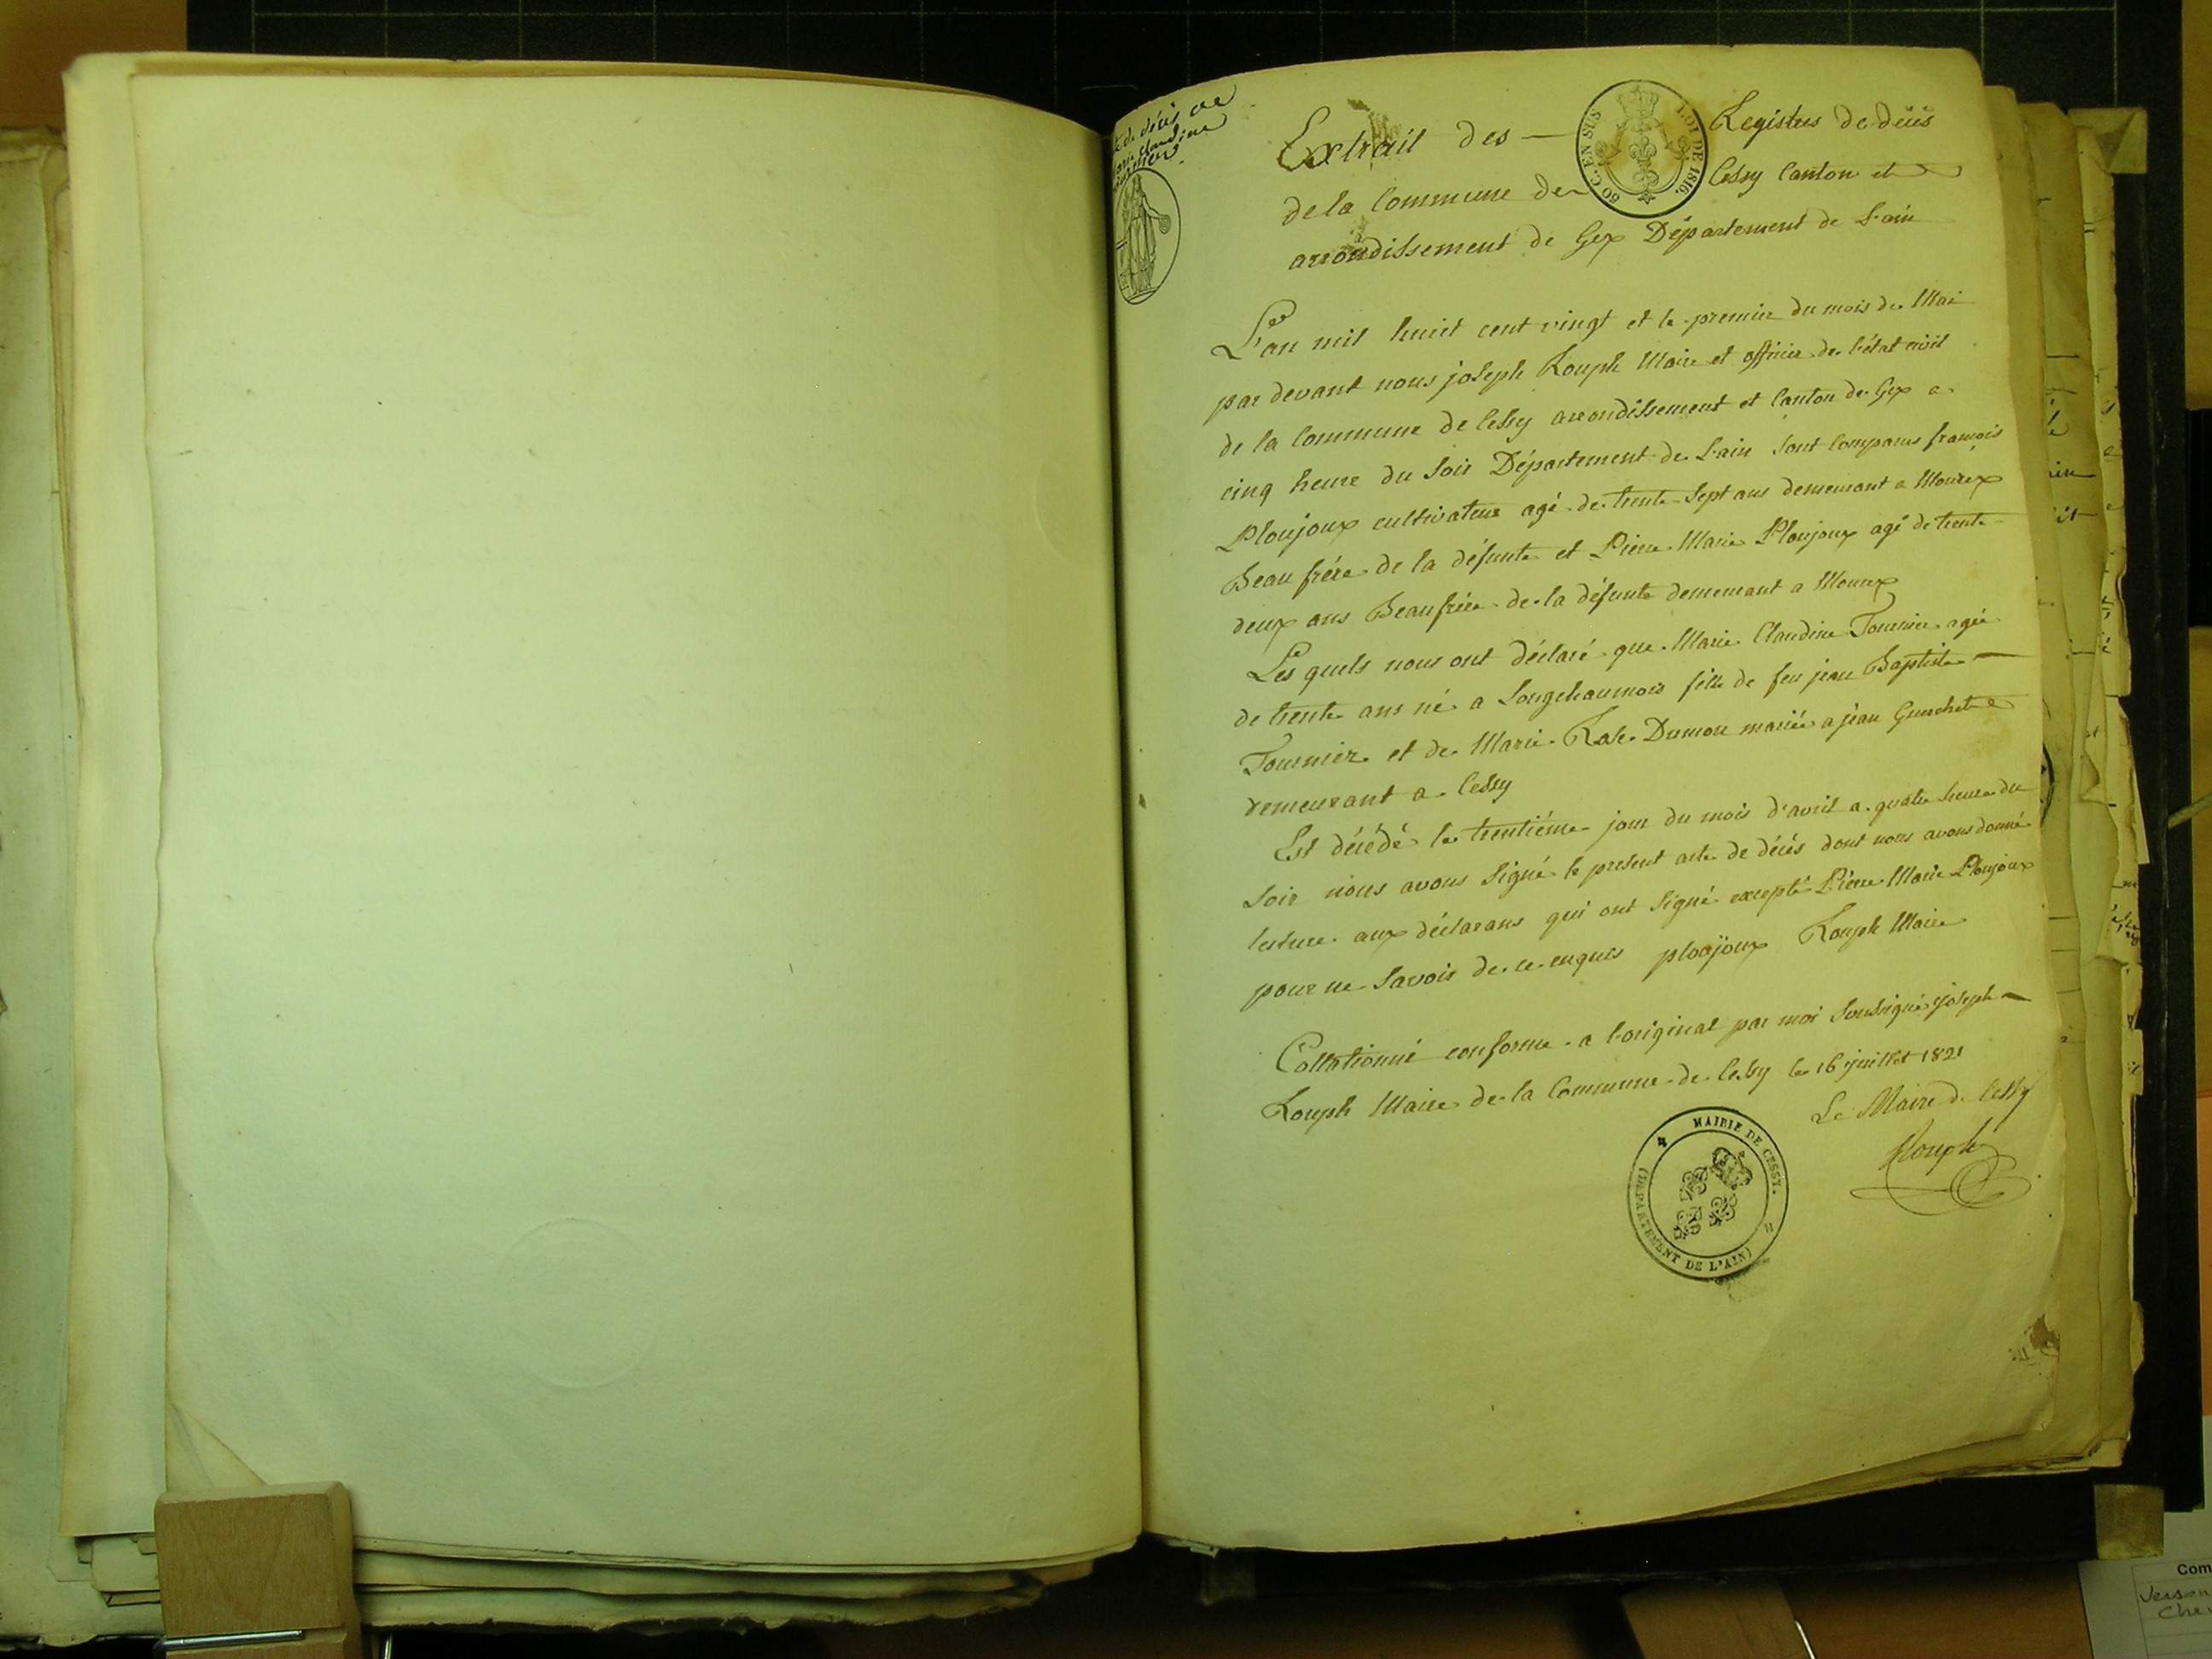 de décès de
Marie Claudine
Extrait des — Registres de décès
60 C. EN SUS
LOI DE 1816.
de la Commune de Cessy Canton et
arrondissement de Gex Département de L'ain
L'an mil huit cent vingt et le premier du mois de Mai
par devant nous joseph Rouph Maire et officier de l'état civil
de la Commune de Cessy arrondissement et Canton de Gex a
cinq heure du Soir Département de L'ain Sont Comparus françois
Ploujoux cultivateur agé de trente Sept ans demeurant a Mourex
Beau frére de la défunte et Pierre Marie Ploujoux agé de trente
deux ans Beau frére de la défunte demeurant a Mourex
Les quels nous ont déclaré que Marie Claudine Tournier agée
de trente ans né a Longchaumois fille de feu jean Baptiste —
Tournier et de Marie Rose Dumon mariée a jean
demeurant a Cessy
Est décédé le trentiéme jour du mois d'avril a quatre heure du
Soir nous avons Signé le present acte de décès dont nous avons donné
lecture aux déclarans qui ont Signé excepté Pierre Marie Ploujoux
pour ne Savoir de ce enquis ploujoux Rouph Maire
Collationné conforme a l'original par moi Soussigné joseph —
Rouph Maire de la Commune de Cessy le 16 juillet 1821
Le Maire de Cessy
Rouph
MAIRIE DE CESSY.
(DEPARTEMENT DE L'AIN)
Com